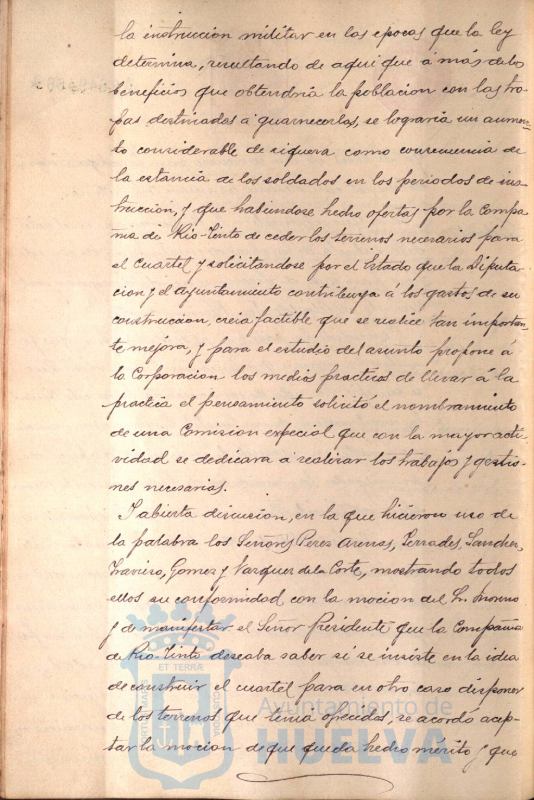 la instruccion militar en las epocas que la ley
determina, resultando de aqui que á más de los
beneficios que obtendria la poblacion con las tro-
pas destinadas á guarnecerlas, se lograria un aumen-
to considerable de riqueza como consecuencia de
la estancia de los soldados en los periodos de ins-
truccion, y que habiendose hecho ofertas por la Compa-
ñia de Rio-Tinto de ceder los terrenos necesarios para
el Cuartel y solicitandose por el Estado que la Diputa-
cion y el Ayuntamiento contribuya á los gastos de su
construccion, creia factible que se realice tan importan-
te mejora, y para el estudio del asunto y propone á
la Corporacion los medios practicos de llevar á la
practica el pensamiento solicitó el nombramiento
de una Comision especial que con la mayor acti-
vidad se dedicara á realizar los trabajos y gestio-
nes necesarias.
Y abierta discusion, en la que hicieron uso de
la palabra los Señores Perez Arenas, Terrades, Sanchez,
Traviesa, Gomez y Vazquez de la Corte, mostrando todos
ellos su conformidad con la mocion del Sr. Moreno
y de manifestar el Señor Presidente que la Compañia
de Rio-Tinto deseaba saber si se insiste en la idea
de construir el cuartel para en otro caso disponer
de los terrenos que tenia ofrecidos, se acordó acep-
tar la mocion de que queda hecho mérito y que
ET TERRÆ
PORTUS MARIS
CUSTODIA
Ayuntamiento de
HUELVA